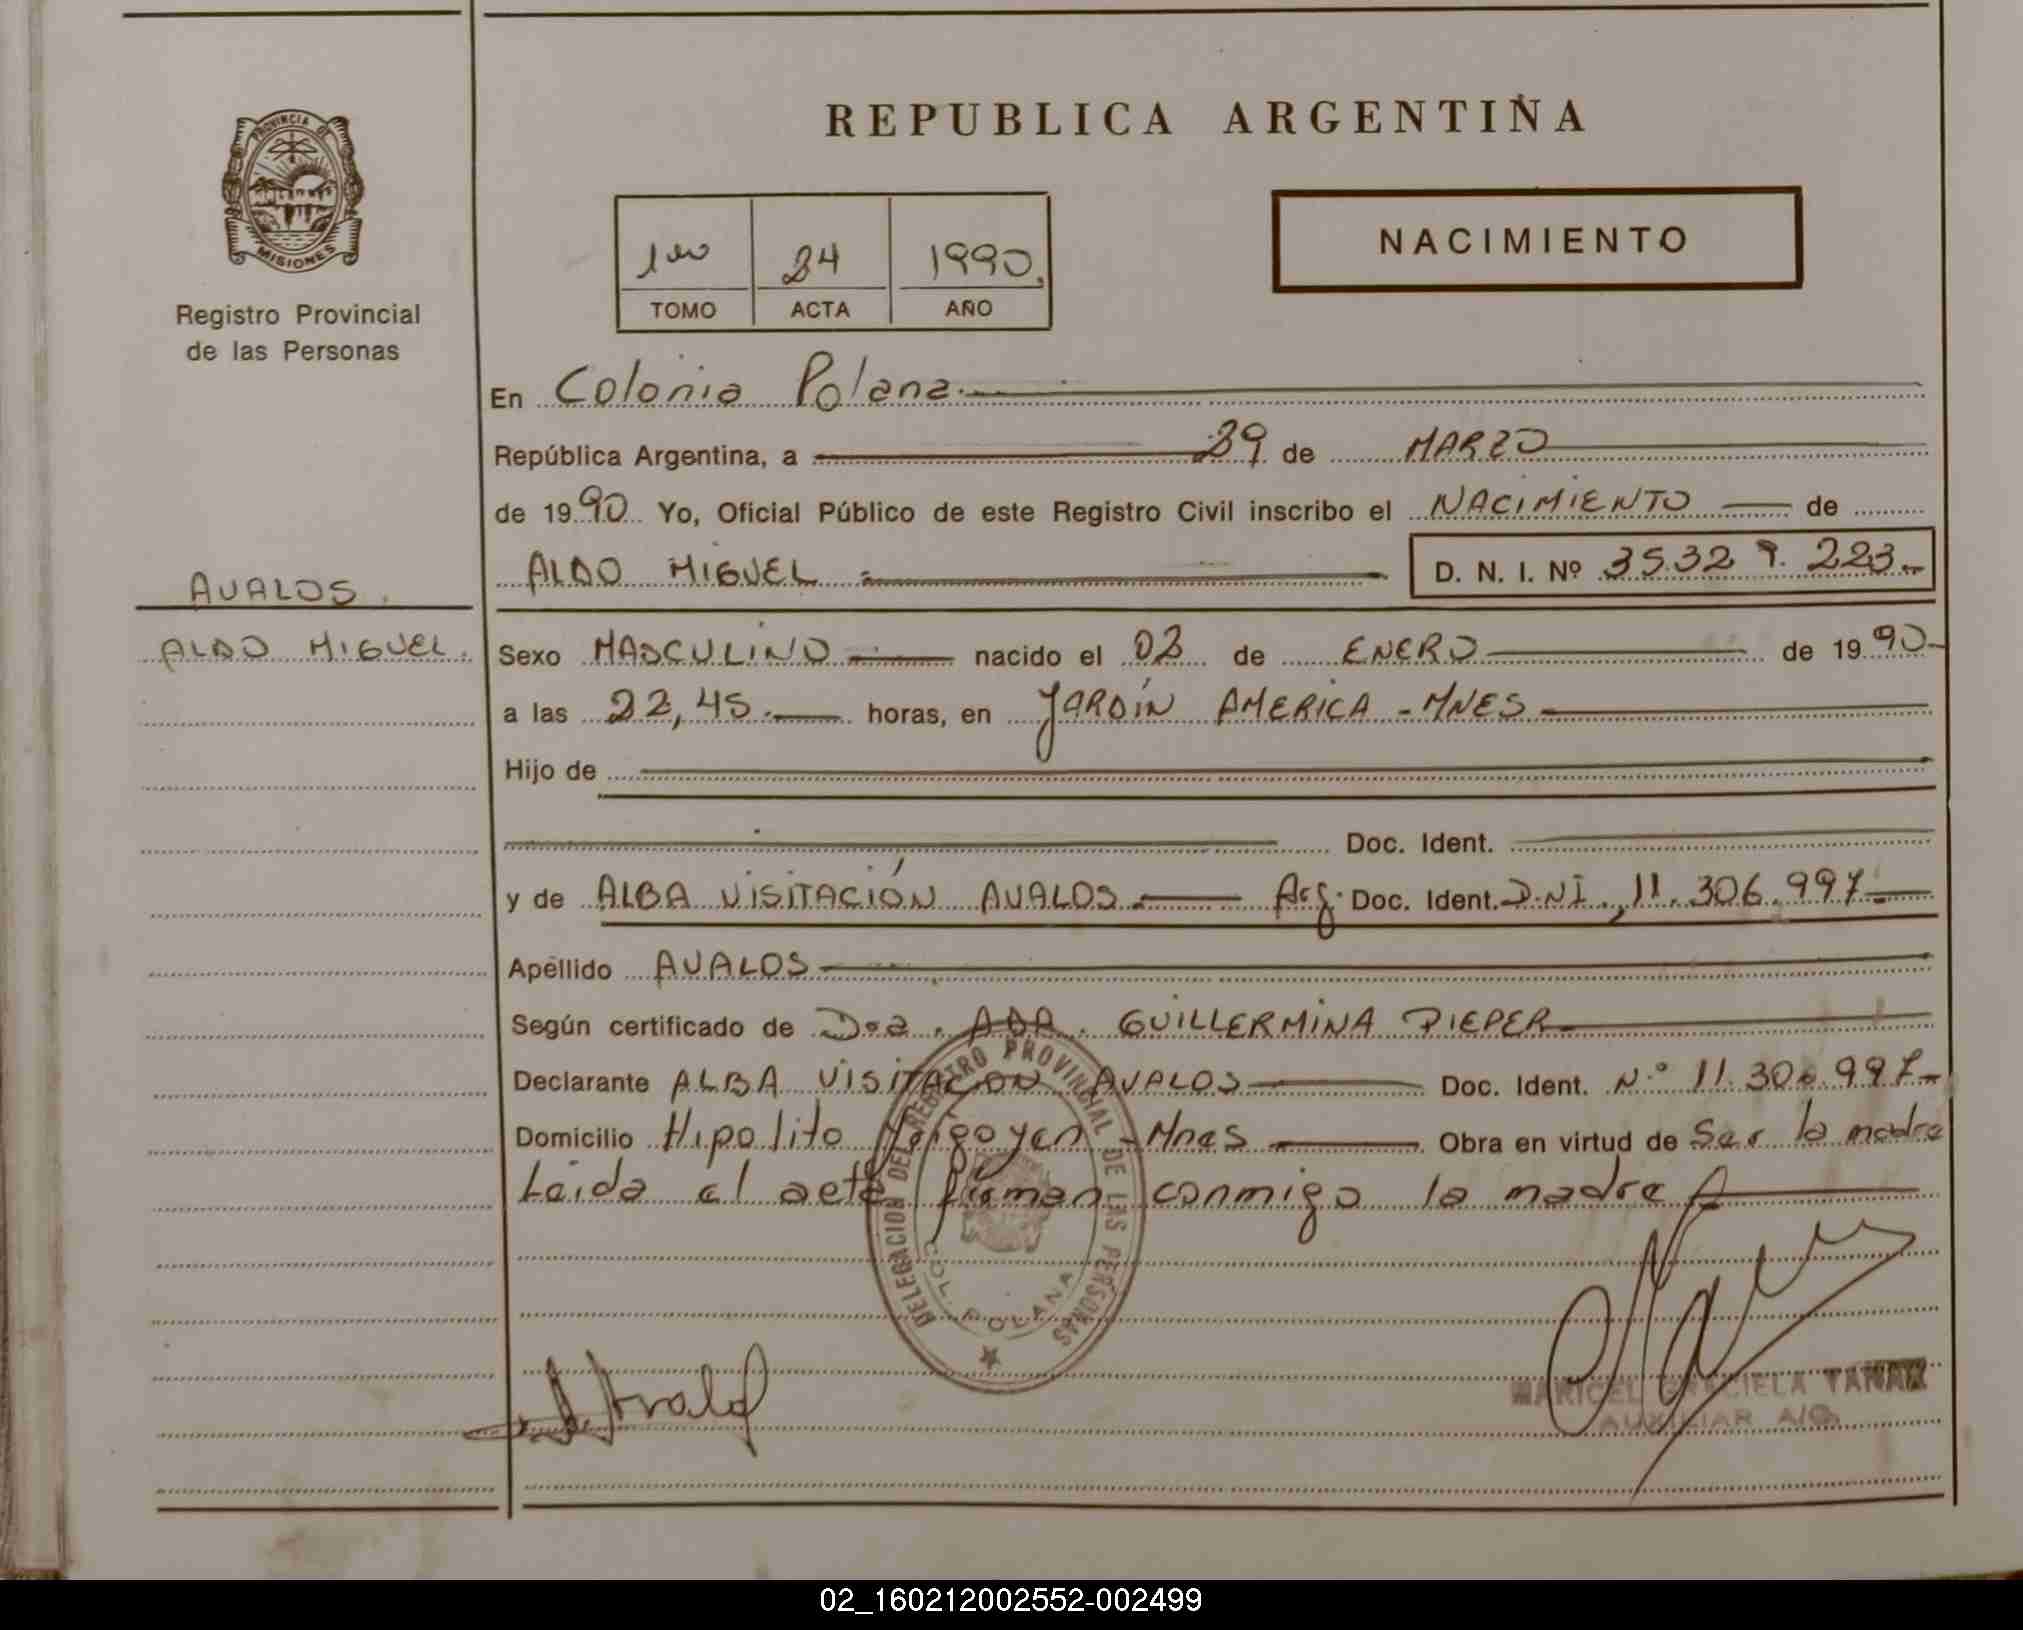 REPUBLICA ARGENTINA
PROVINCIA DE MISIONES
Registro Provincial
de las Personas
1ro 24 1990
TOMO ACTA AÑO
NACIMIENTO
En Colonia Polana
República Argentina, a 29 de MARZO
de 1990 Yo, Oficial Público de este Registro Civil inscribo el NACIMIENTO de
ALDO MIGUEL D. N. I. Nº 35.329.223
AVALOS
ALDO MIGUEL.
Sexo MASCULINO nacido el 02 de ENERO de 1990
a las 22,45 horas, en JARDÍN AMERICA - MNES
Hijo de
Doc. Ident.
y de ALBA VISITACIÓN AVALOS Arg. Doc. Ident. D.N.I. 11.306.997
Apellido AVALOS
Según certificado de Dra. ADA GUILLERMINA PIEPER
Declarante ALBA VISITACION AVALOS Doc. Ident. N.º 11.306.997
Domicilio Hipolito Yrigoyen - Mnes Obra en virtud de Ser la madre
Leida el acta firman conmigo la madre
DELEGACION DEL REGISTRO PROVINCIAL DE LAS PERSONAS
COL. POLANA
MARICEL GRACIELA
AUXILIAR A/C
02_160212002552-002499